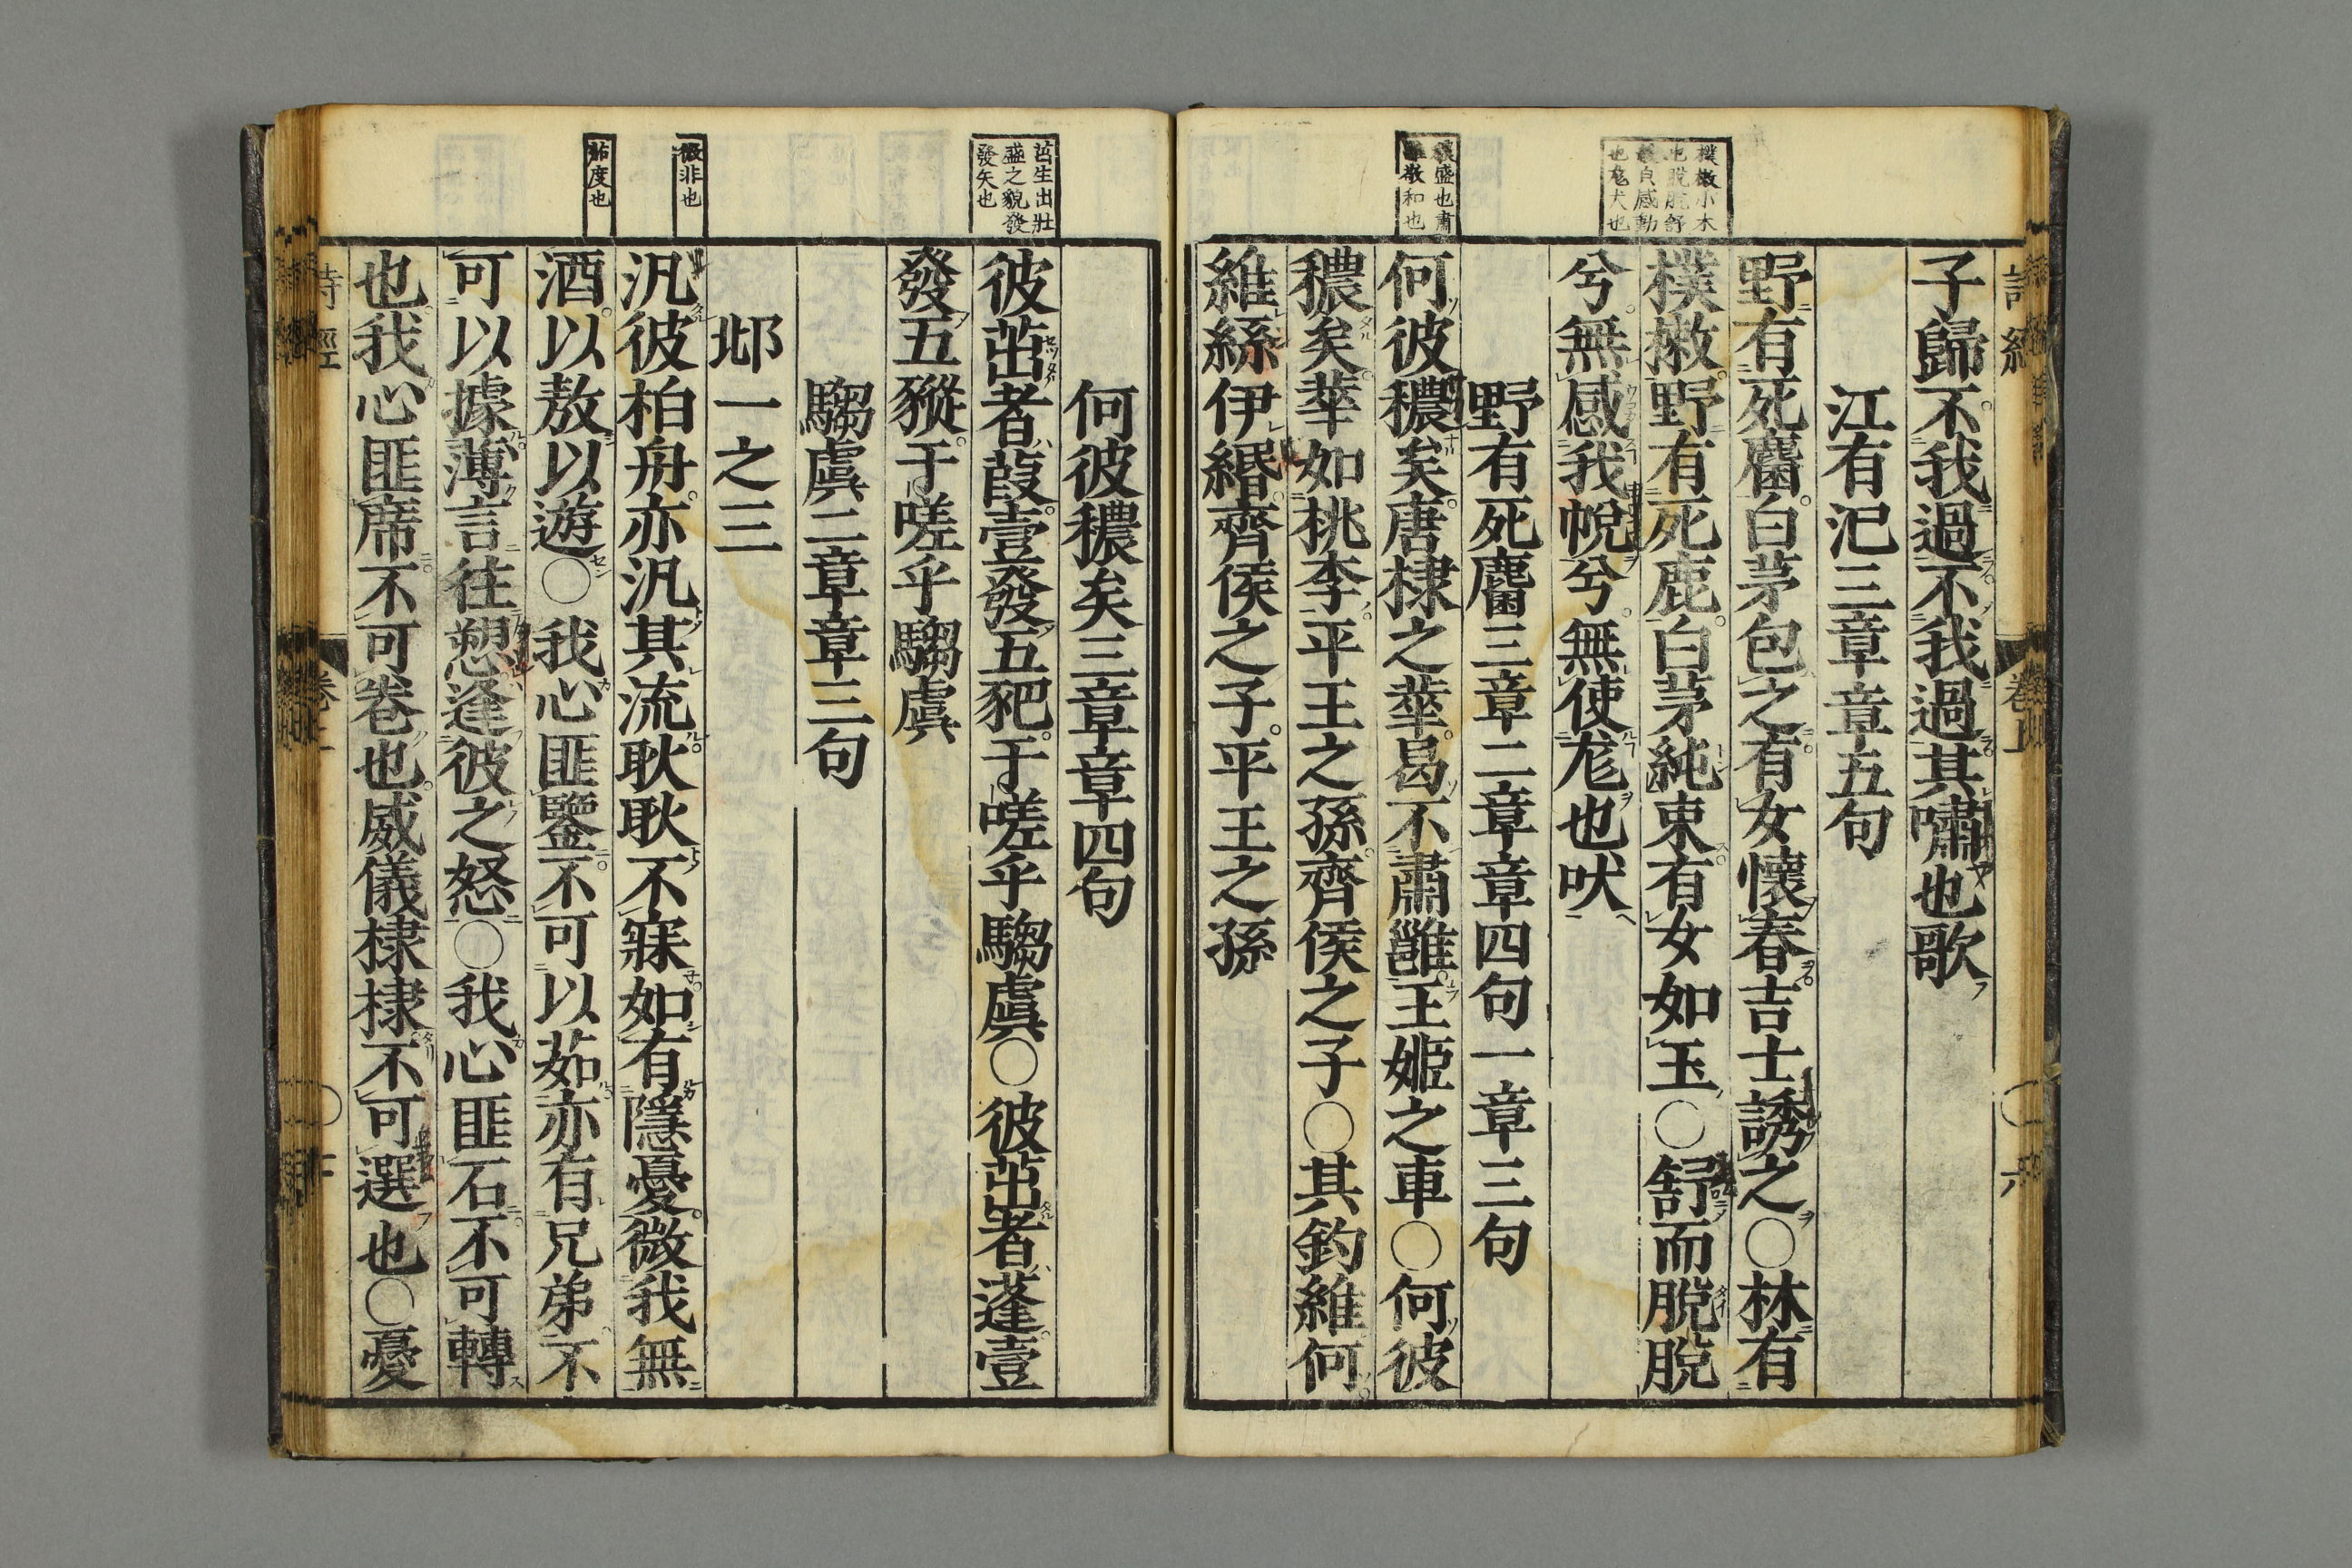 樸樕小木
也脱脱舒
貌貞感動
也尨犬也
穠盛也肅
雝敬和也
子歸不我過不我過其嘯也歌
江有汜三章章五句
野有死麕白茅包之有女懷春吉士誘之〇林有
樸樕野有死鹿白茅純束有女如玉〇舒而脫脫
兮無感我帨兮無使尨也吠
野有死麕三章二章章四句一章三句
何彼穠矣唐棣之華曷不肅雝王姬之車〇何彼
穠矣華如桃李平王之孫齊侯之子〇其釣維何
維絲伊緡齊侯之子平王之孫
茁生出壯
盛之貌發
發矢也
微非也
茹度也
何彼穠矣三章章四句
彼茁者葭壹發五豝于嗟乎騶虞〇彼茁者蓬壹
發五豵于嗟乎騶虞
騶虞二章章三句
邶一之三
汎彼柏舟亦汎其流耿耿不寐如有隱憂微我無
酒以敖以遊〇我心匪鑒不可以茹亦有兄弟不
可以據薄言往愬逢彼之怒〇我心匪石不可轉
也我心匪席不可卷也威儀棣棣不可選也〇憂
詩經